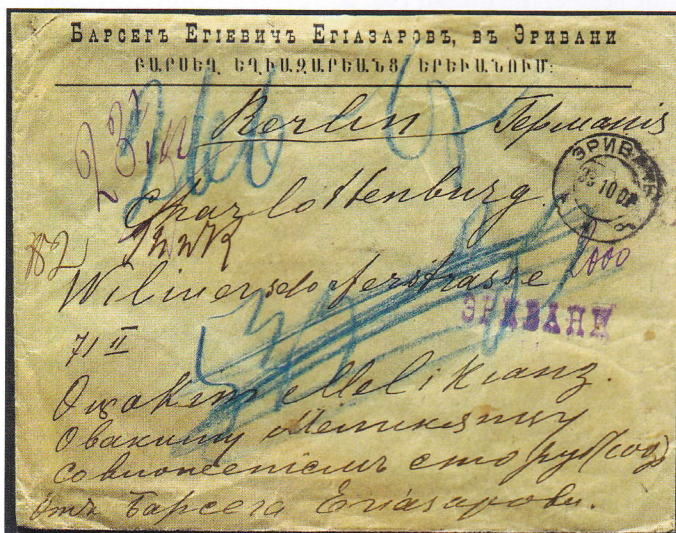 БАРСЕГЪ ЕГІЕВИЧЪ ЕГІАЗАРОВЪ, ВЪ ЭРИВАНИ
ԲԱՐՍԵՂ ԵՂԻԱԶԱՐԵԱՆՑ ԵՐԵՒԱՆՈՒՄ:
Berlin Германія
ЭРИВАНЬ
Charlottenburg.
82
2000
Wilmersdorferstrasse
ЭРИВАНИ
71 II
Owakem Melikianz.
Овакиму Меликянцу
со вложеніемъ сто руб (100)
Отъ Барсега Егіазарова.